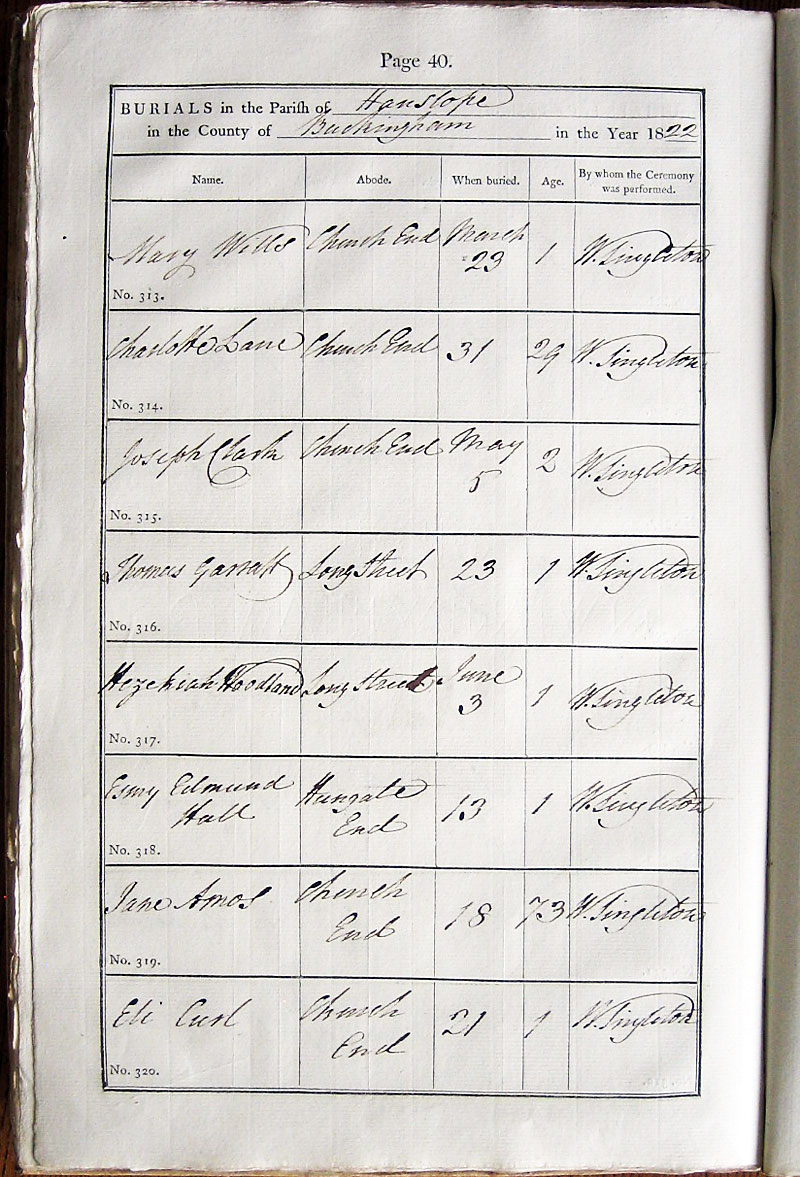 Page 40.
BURIALS in the Parish of Hanslope
in the County of Buckingham in the Year 1822
Name. Abode. When buried. Age. By whom the Ceremony was performed.
Mary Wills Church End March 23 1 W. Singleton
No. 313.
Charlotte Lane Church End 31 29 W. Singleton
No. 314.
Joseph Clark Church End May 5 2 W. Singleton
No. 315.
Thomas Garratt Long Street 23 1 W. Singleton
No. 316.
Hezekiah Woodland Long Street June 3 1 W. Singleton
No. 317.
Edmund Hall Hungate End 13 1 W. Singleton
No. 318.
Jane Amos Church End 18 73 W. Singleton
No. 319.
Eli Curl Church End 21 1 W. Singleton
No. 320.